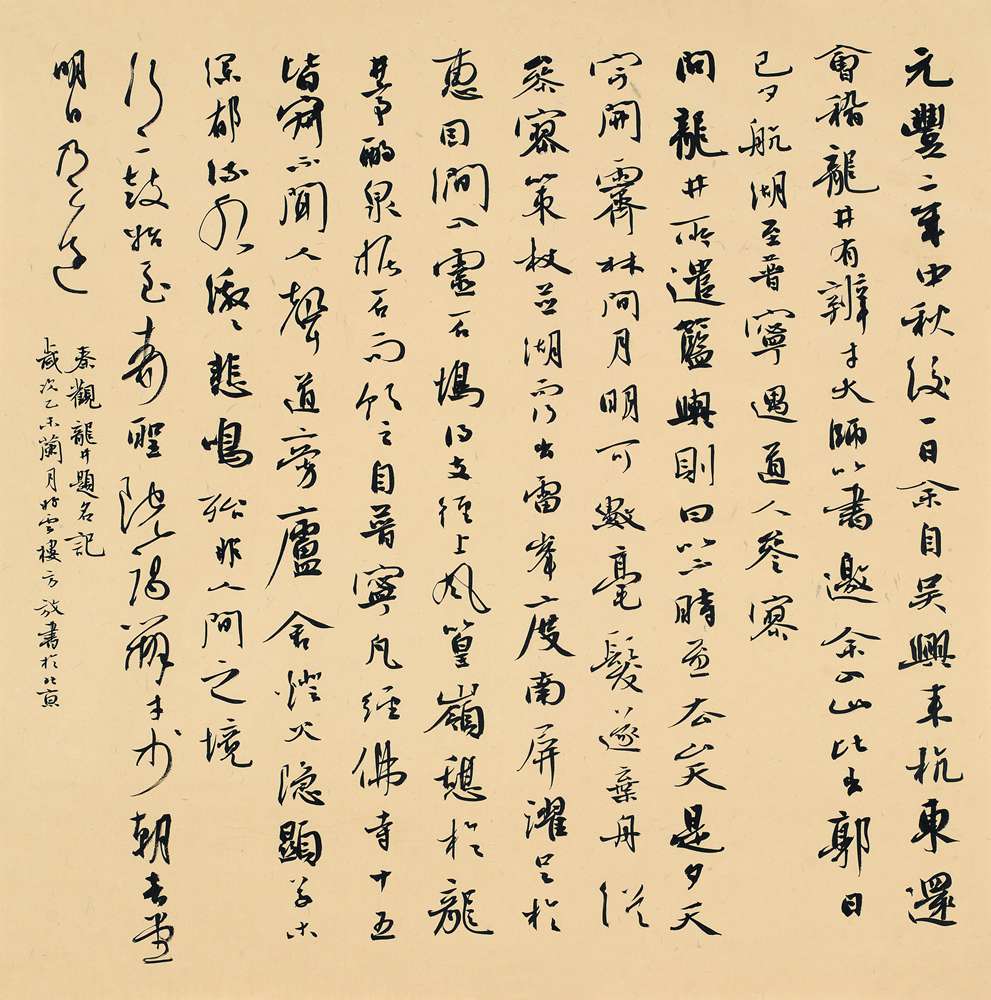 元豐二年中秋後一日余自吳興来杭東還
會稽龍井有辨才大師以書邀余入山比出郭日
已夕航湖至普寧遇道人參寥
問龍井所遣籃輿則曰以不時至去矣是夕天
宇開霽林間月明可數毫髮遂棄舟從
參寥策杖並湖而行出雷峯度南屏濯足於
惠因澗入靈石塢得支徑上風篁嶺憩於龍
井亭酌泉据石而飲之自普寧凡經佛寺十五
皆寂不聞人聲道旁廬舍燈火隱顯草木
深郁流水激々悲鳴殆非人間之境
行二鼓始至壽聖院謁辨才於朝音堂
明日乃還
秦觀龍井題名記
歲次乙未蘭月於雲樓方放書於北京